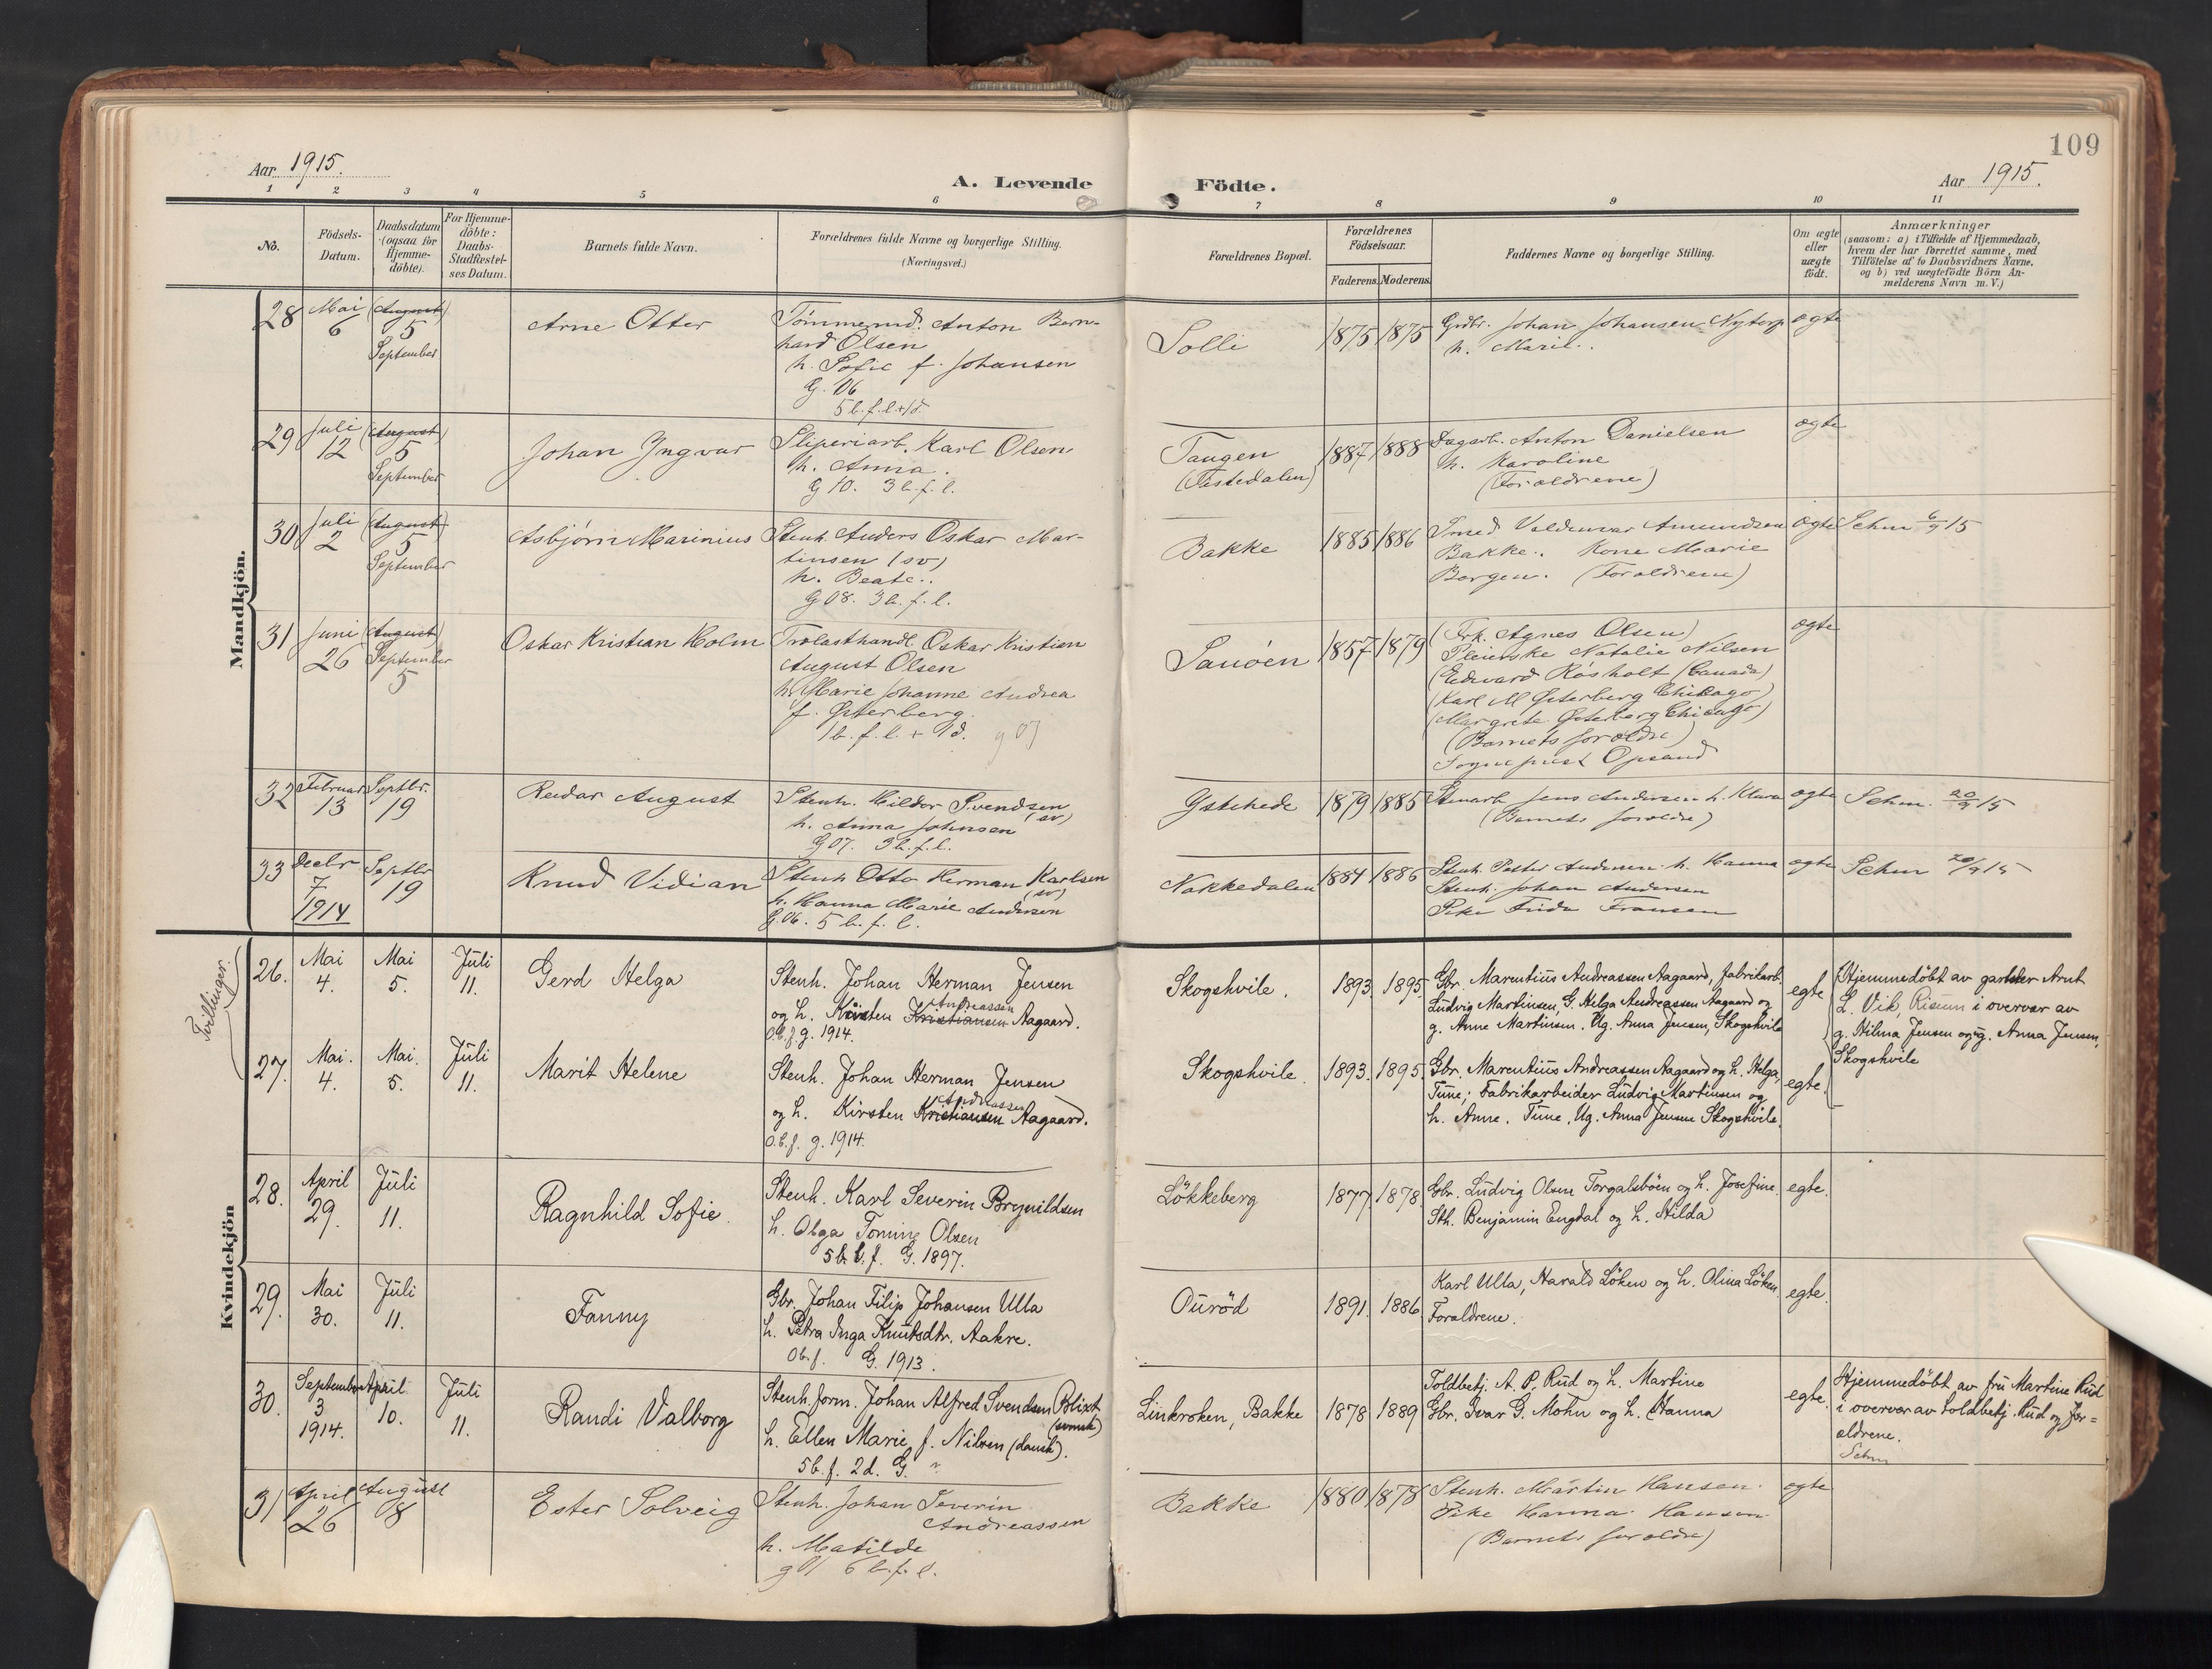 109
Aar 1915.
A. Levende Födte.
Aar 1915.
1 2 3 4 5 6 7 8 9 10 11
No.
Födsels-Datum.
Daabsdatum (ogsaa for Hjemme-döbte).
For Hjemme-döbte: Daabs-Stadfæstel-ses Datum.
Barnets fulde Navn.
Forældrenes fulde Navne og borgerlige Stilling.
(Næringsvei.)
Forældrenes Bopæl.
Forældrenes Födselsaar.
Faderens. Moderens.
Faddernes Navne og borgerlige Stilling.
Om ægte eller uægte födt.
Anmærkninger
(saasom: a) i Tilfælde af Hjemmedaab, hvem der har forrettet samme, med Tilföielse af to Daabsvidners Navne, og b) ved uægtefödte Börn An-melderens Navn m. V.)
Mandkjön.
28 Mai 6 (August) 5 September
Arne Otter
Tömmermd. Anton Bern-
hard Olsen
h. Sofie f. Johansen
G. 06
5 b. f. l. + 1 d.
Solli 1875 1875
Grdbr. Johan Johansen Nytorp
h. Marie.
ægte
29 Juli 12 (August) 5 September
Johan Ingvar
Sliperiarb. Karl Olsen
h. Anna.
G 10. 3 b. f. l.
Tangen
(Tistedalen)
1887 1888
Dagarb. Anton Danielsen
h. Karoline
(Forældrene)
ægte
30 Juli 2 (August) 5 September
Asbjørn Marinius
Stenh. Anders Oskar Mar-
tinsen (sv)
h. Beate..
G 08. 3 b. f. l.
Bakke 1885 1886
Smed Valdemar Amundsen
Bakke. Kone Marie
Borgen. (Forældrene)
ægte
Schm 6/9 15
31 Juni 26 (August) September 5
Oskar Kristian Holm
Trælasthandl. Oskar Kristian
August Olsen
h. Marie Johanne Andrea
f. Østerberg.
1 b. f. l. + 1 d. g 07
Sanöen 1857 1879
(Frk. Agnes Olsen)
Pleierske Natalie Nilsen
(Edward Røsholt (Canada)
(Karl M Østerberg Chikago)
(Margrete Østerberg Chicago)
(Barnets forældre)
Sogneprest Opsand
ægte
32 Februar 13 Septbr. 19
Reidar August
Stenh. Hildor Svendsen
(sv)
h. Anna Johnsen
G 07. 3 b. f. l.
Ystehede 1879 1885
Stenarb. Jens Andersen h. Klara
(Barnets forældre)
ægte
Schm. 20/9 15
33 Decbr 7 1914 Septbr 19
Knud Vidian
Stenh Otto Herman Karlsen
(sv)
h. Hanna Marie Andersen
G. 06. 5 b. f. l.
Nakkedalen 1884 1886
Stenh. Petter Andersen h. Hanna
Stenh. Johan Andersen
Pike Frida Fransen
ægte
Schm 20/9 15
Kvindekjön
Tvillinger.
26. Mai 4. Mai 5. Juli 11.
Gerd Helga
Stenh. Johan Herman Jensen
Andreassen
og h. Kirsten Kristiansen Aagaard.
O.b.f. g. 1914.
Skogshvile. 1893. 1895.
Gbr. Marentius Andreassen Aagaard, fabrikarb.
Ludvig Martinsen, G. Helga Andreassen Aagaard og
g. Anne Martinsen. Ug. Anna Jensen, Skogshvile
egte
Hjemmedöbt av gartner Arnt
L. Vik, Risum i overvær av
g. Hilma Jensen og g. Anna Jensen,
Skogshvile
27. Mai. 4. Mai. 5. Juli 11.
Marit Helene
Stenh. Johan Herman Jensen
Andreassen
og h. Kirsten Kristiansen Aagaard.
O.b.f. g. 1914.
Skogshvile. 1893. 1895.
Gbr. Marentius Andreassen Aagaard og h. Helga,
Tune; Fabrikarbeider Ludvig Martinsen og
h. Anne. Tune, Ug. Anna Jensen Skogshvile.
egte.
28. April 29. Juli 11.
Ragnhild Sofie.
Stenh. Karl Severin Brynildsen
h. Olga Tomine Olsen
5 b. l. f. G. 1897.
Lökkeberg 1877. 1878.
Gbr. Ludvig Olsen Torgalsböen og h. Josefine.
Sth. Benjamin Engdal og h. Hilda
egte.
29. Mai 30. Juli 11.
Fanny
Gbr. Johan Filip Johansen Ulla
h. Petra Inga Knutsdtr. Aakre.
Ob.f. G. 1913.
Ouröd 1891. 1886.
Karl Ulla, Harald Löken og h. Olina Löken
Forældrene.
egte.
30. September 3 1914. April 10. Juli 11.
Randi Valborg
Stenh. form. Johan Alfred Svendsen Blixt
(svensk)
h. Ellen Marie, f. Nilsen (dansk).
5 b. f. 2 d. G. "
Linkroken, Bakke 1878 1889
Toldbetj. A. P. Rud og h. Martine
Gbr. Ivar G. Mohn og h. Hanna
egte.
Hjemmedöbt av fru Martine Rud
i overvær av toldbetj. Rud og for=
ældrene.
Schm
31 April 26 August 8
Ester Solveig
Stenh. Johan Severin
Andreassen
h. Matilde
g 01 6 b. f. l.
Bakke 1880 1878
Stenh. Martin Hansen.
Pike Hanna Hansen.
(Barnets forældre)
ægte